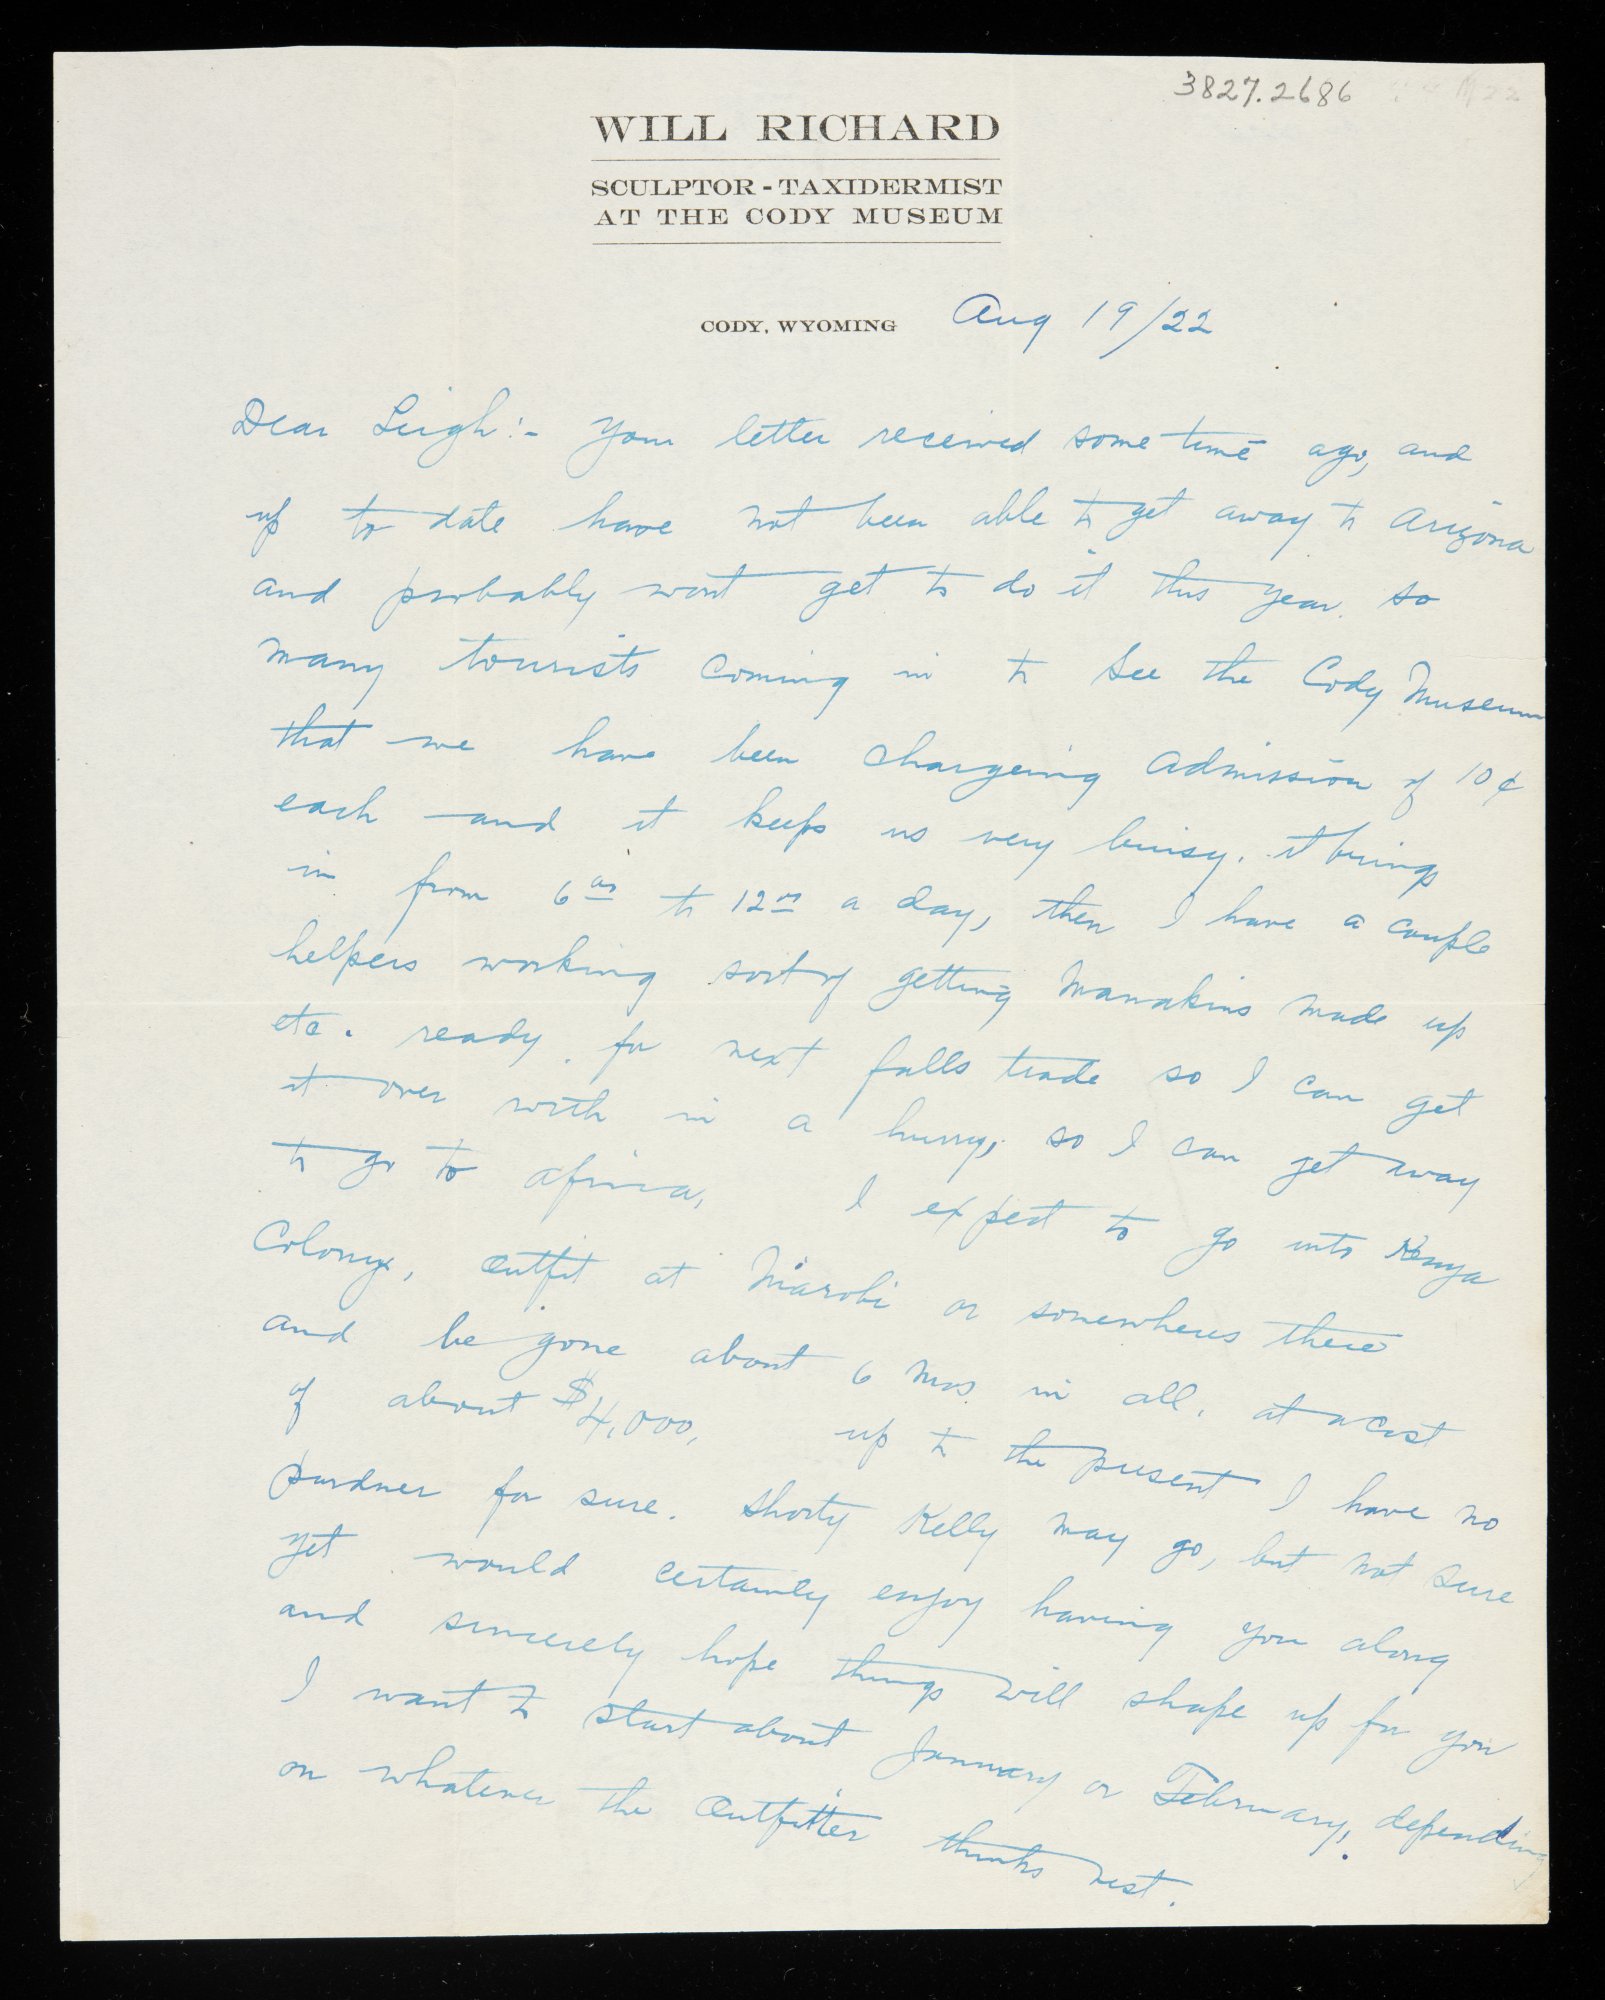 3827.2686
WILL RICHARD
SCULPTOR - TAXIDERMIST
AT THE CODY MUSEUM
CODY, WYOMING Aug 19/22
Dear Leigh:- Your letter received some time ago, and
up to date have not been able to get away to Arizona
and probably wont get to do it this year. so
many tourists coming in to see the Cody Museum
that we have been chargeing admission of 10¢
each and it keeps us very buisy. it brings
in from 6 00 to 12 00 a day, then I have a couple
helpers working sort of getting Manakins made up
etc. ready for next falls trade so I can get
it over with in a hurry, so I can get away
to go to Africa, I expect to go into Kenya
Colony, outfit at Niarobi or somewheres there
and be gone about 6 mos in all. at a cost
of about $4,000, up to the present I have no
pardner for sure. Shorty Kelly may go, but not sure
yet would certainly enjoy having you along
and sincerely hope things will shape up for you
I want to start about January or February, depending
on whatever the Outfitter thinks best.